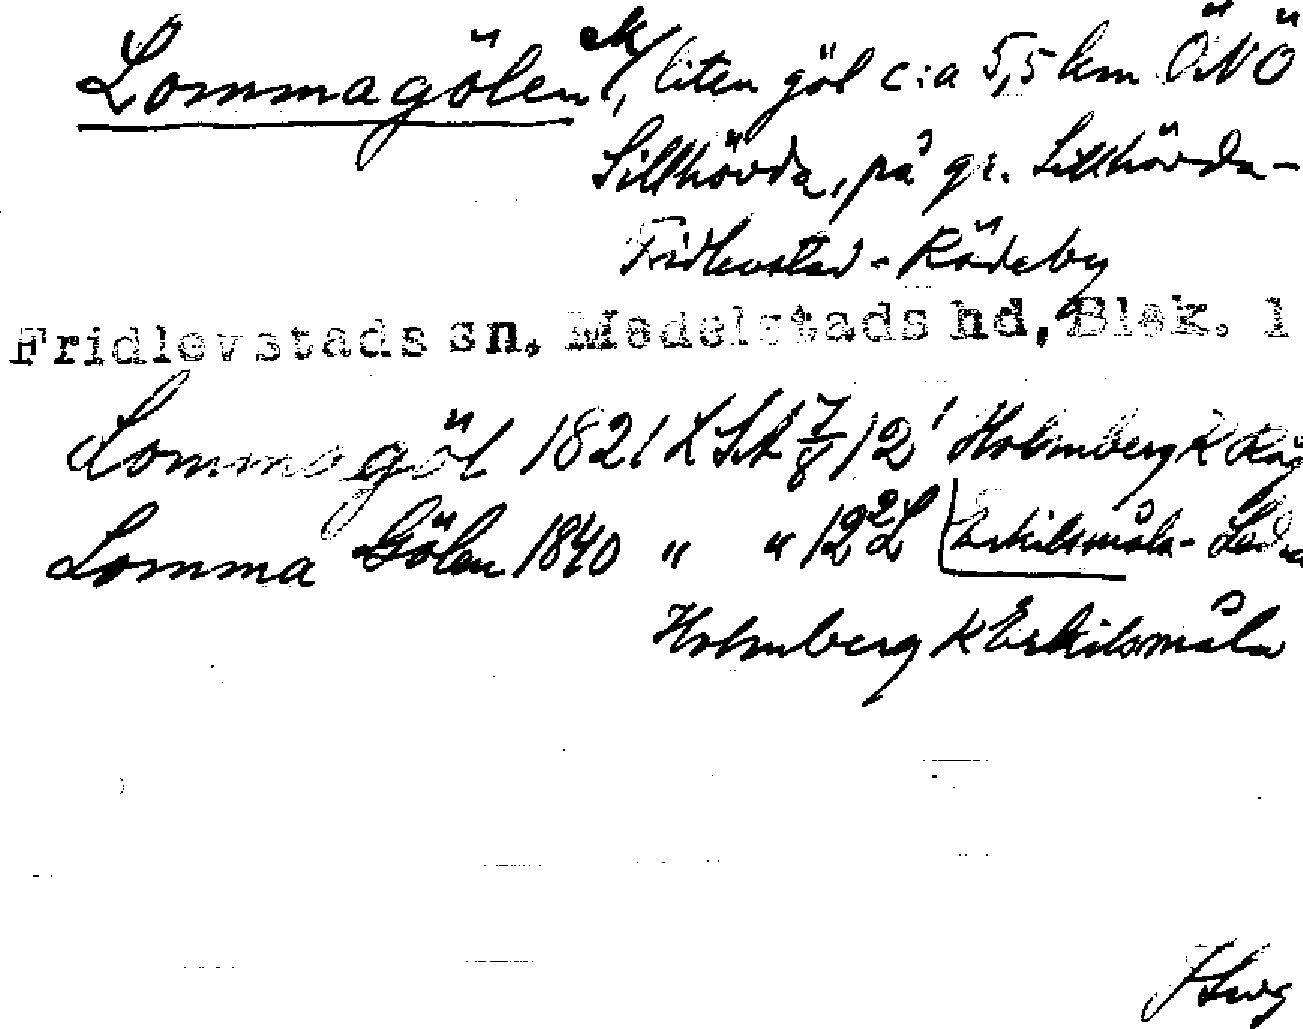 Lommagölen, liten göl c:a 5,5 km ÖNÖ
Sillhövda, på gr. Sillhövda-
Fridlevstad - Rödeby
Fridlevstads sn, Medelstads hd, Blek. l
Lommagöl 1821 LSA 7/8 12' Holmberg K
Lomma Gölen 1840 " " 12² L Erkilsmåla-
Holmberg K Erkilsmåla